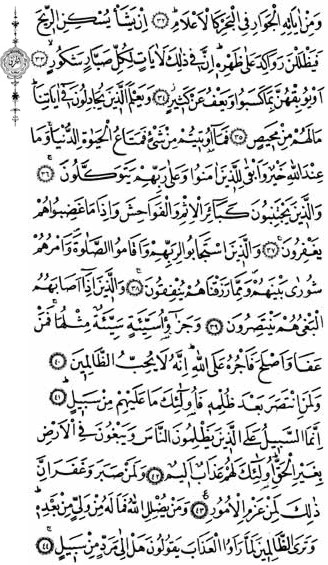 وَمِنْ اٰيَاتِهِ الْجَوَارِ فِي الْبَحْرِ كَالْاَعْلَامِ ﴿٣٢﴾ اِنْ يَشَأْ يُسْكِنِ الرّ۪يحَ
فَيَظْلَلْنَ رَوَاكِدَ عَلٰى ظَهْرِه۪ اِنَّ ف۪ي ذٰلِكَ لَاٰيَاتٍ لِكُلِّ صَبَّارٍ شَكُورٍ ﴿٣٣﴾
اَوْ يُوبِقْهُنَّ بِمَا كَسَبُوا وَيَعْفُ عَنْ كَث۪يرٍ ﴿٣٤﴾ وَيَعْلَمَ الَّذ۪ينَ يُجَادِلُونَ ف۪ٓي اٰيَاتِنَا
مَا لَهُمْ مِنْ مَح۪يصٍ ﴿٣٥﴾ فَمَٓا اُو۫ت۪يتُمْ مِنْ شَيْءٍ فَمَتَاعُ الْحَيٰوةِ الدُّنْيَا وَمَا
عِنْدَ اللّٰهِ خَيْرٌ وَاَبْقٰى لِلَّذ۪ينَ اٰمَنُوا وَعَلٰى رَبِّهِمْ يَتَوَكَّلُونَ ﴿٣٦﴾
وَالَّذ۪ينَ يَجْتَنِبُونَ كَبَٓائِرَ الْاِثْمِ وَالْفَوَاحِشَ وَاِذَا مَا غَضِبُوا هُمْ
يَغْفِرُونَ ﴿٣٧﴾ وَالَّذ۪ينَ اسْتَجَابُوا لِرَبِّهِمْ وَاَقَامُوا الصَّلٰوةَ وَاَمْرُهُمْ
شُورٰى بَيْنَهُمْ وَمِمَّا رَزَقْنَاهُمْ يُنْفِقُونَ ﴿٣٨﴾ وَالَّذ۪ينَ اِذَٓا اَصَابَهُمُ
الْبَغْيُ هُمْ يَنْتَصِرُونَ ﴿٣٩﴾ وَجَزٰٓؤُا سَيِّئَةٍ سَيِّئَةٌ مِثْلُهَا فَمَنْ
عَفَا وَاَصْلَحَ فَاَجْرُهُ عَلَى اللّٰهِ اِنَّهُ لَا يُحِبُّ الظَّالِم۪ينَ ﴿٤٠﴾
وَلَمَنِ انْتَصَرَ بَعْدَ ظُلْمِه۪ فَاُو۬لٰٓئِكَ مَا عَلَيْهِمْ مِنْ سَب۪يلٍ ﴿٤١﴾
اِنَّمَا السَّب۪يلُ عَلَى الَّذ۪ينَ يَظْلِمُونَ النَّاسَ وَيَبْغُونَ فِي الْاَرْضِ
بِغَيْرِ الْحَقِّ اُو۬لٰٓئِكَ لَهُمْ عَذَابٌ اَل۪يمٌ ﴿٤٢﴾ وَلَمَنْ صَبَرَ وَغَفَرَ اِنَّ
ذٰلِكَ لَمِنْ عَزْمِ الْاُمُورِ ﴿٤٣﴾ وَمَنْ يُضْلِلِ اللّٰهُ فَمَا لَهُ مِنْ وَلِيٍّ مِنْ بَعْدِه۪
وَتَرَى الظَّالِم۪ينَ لَمَّا رَاَوُا الْعَذَابَ يَقُولُونَ هَلْ اِلٰى مَرَدٍّ مِنْ سَب۪يلٍ ﴿٤٤﴾